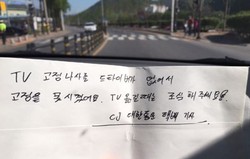 TV 고정나사를 드라이버가 없어서
고정을 못시켰어요. TV 옮길때는 조심해주세요.
CJ 대한통운 택배 기사